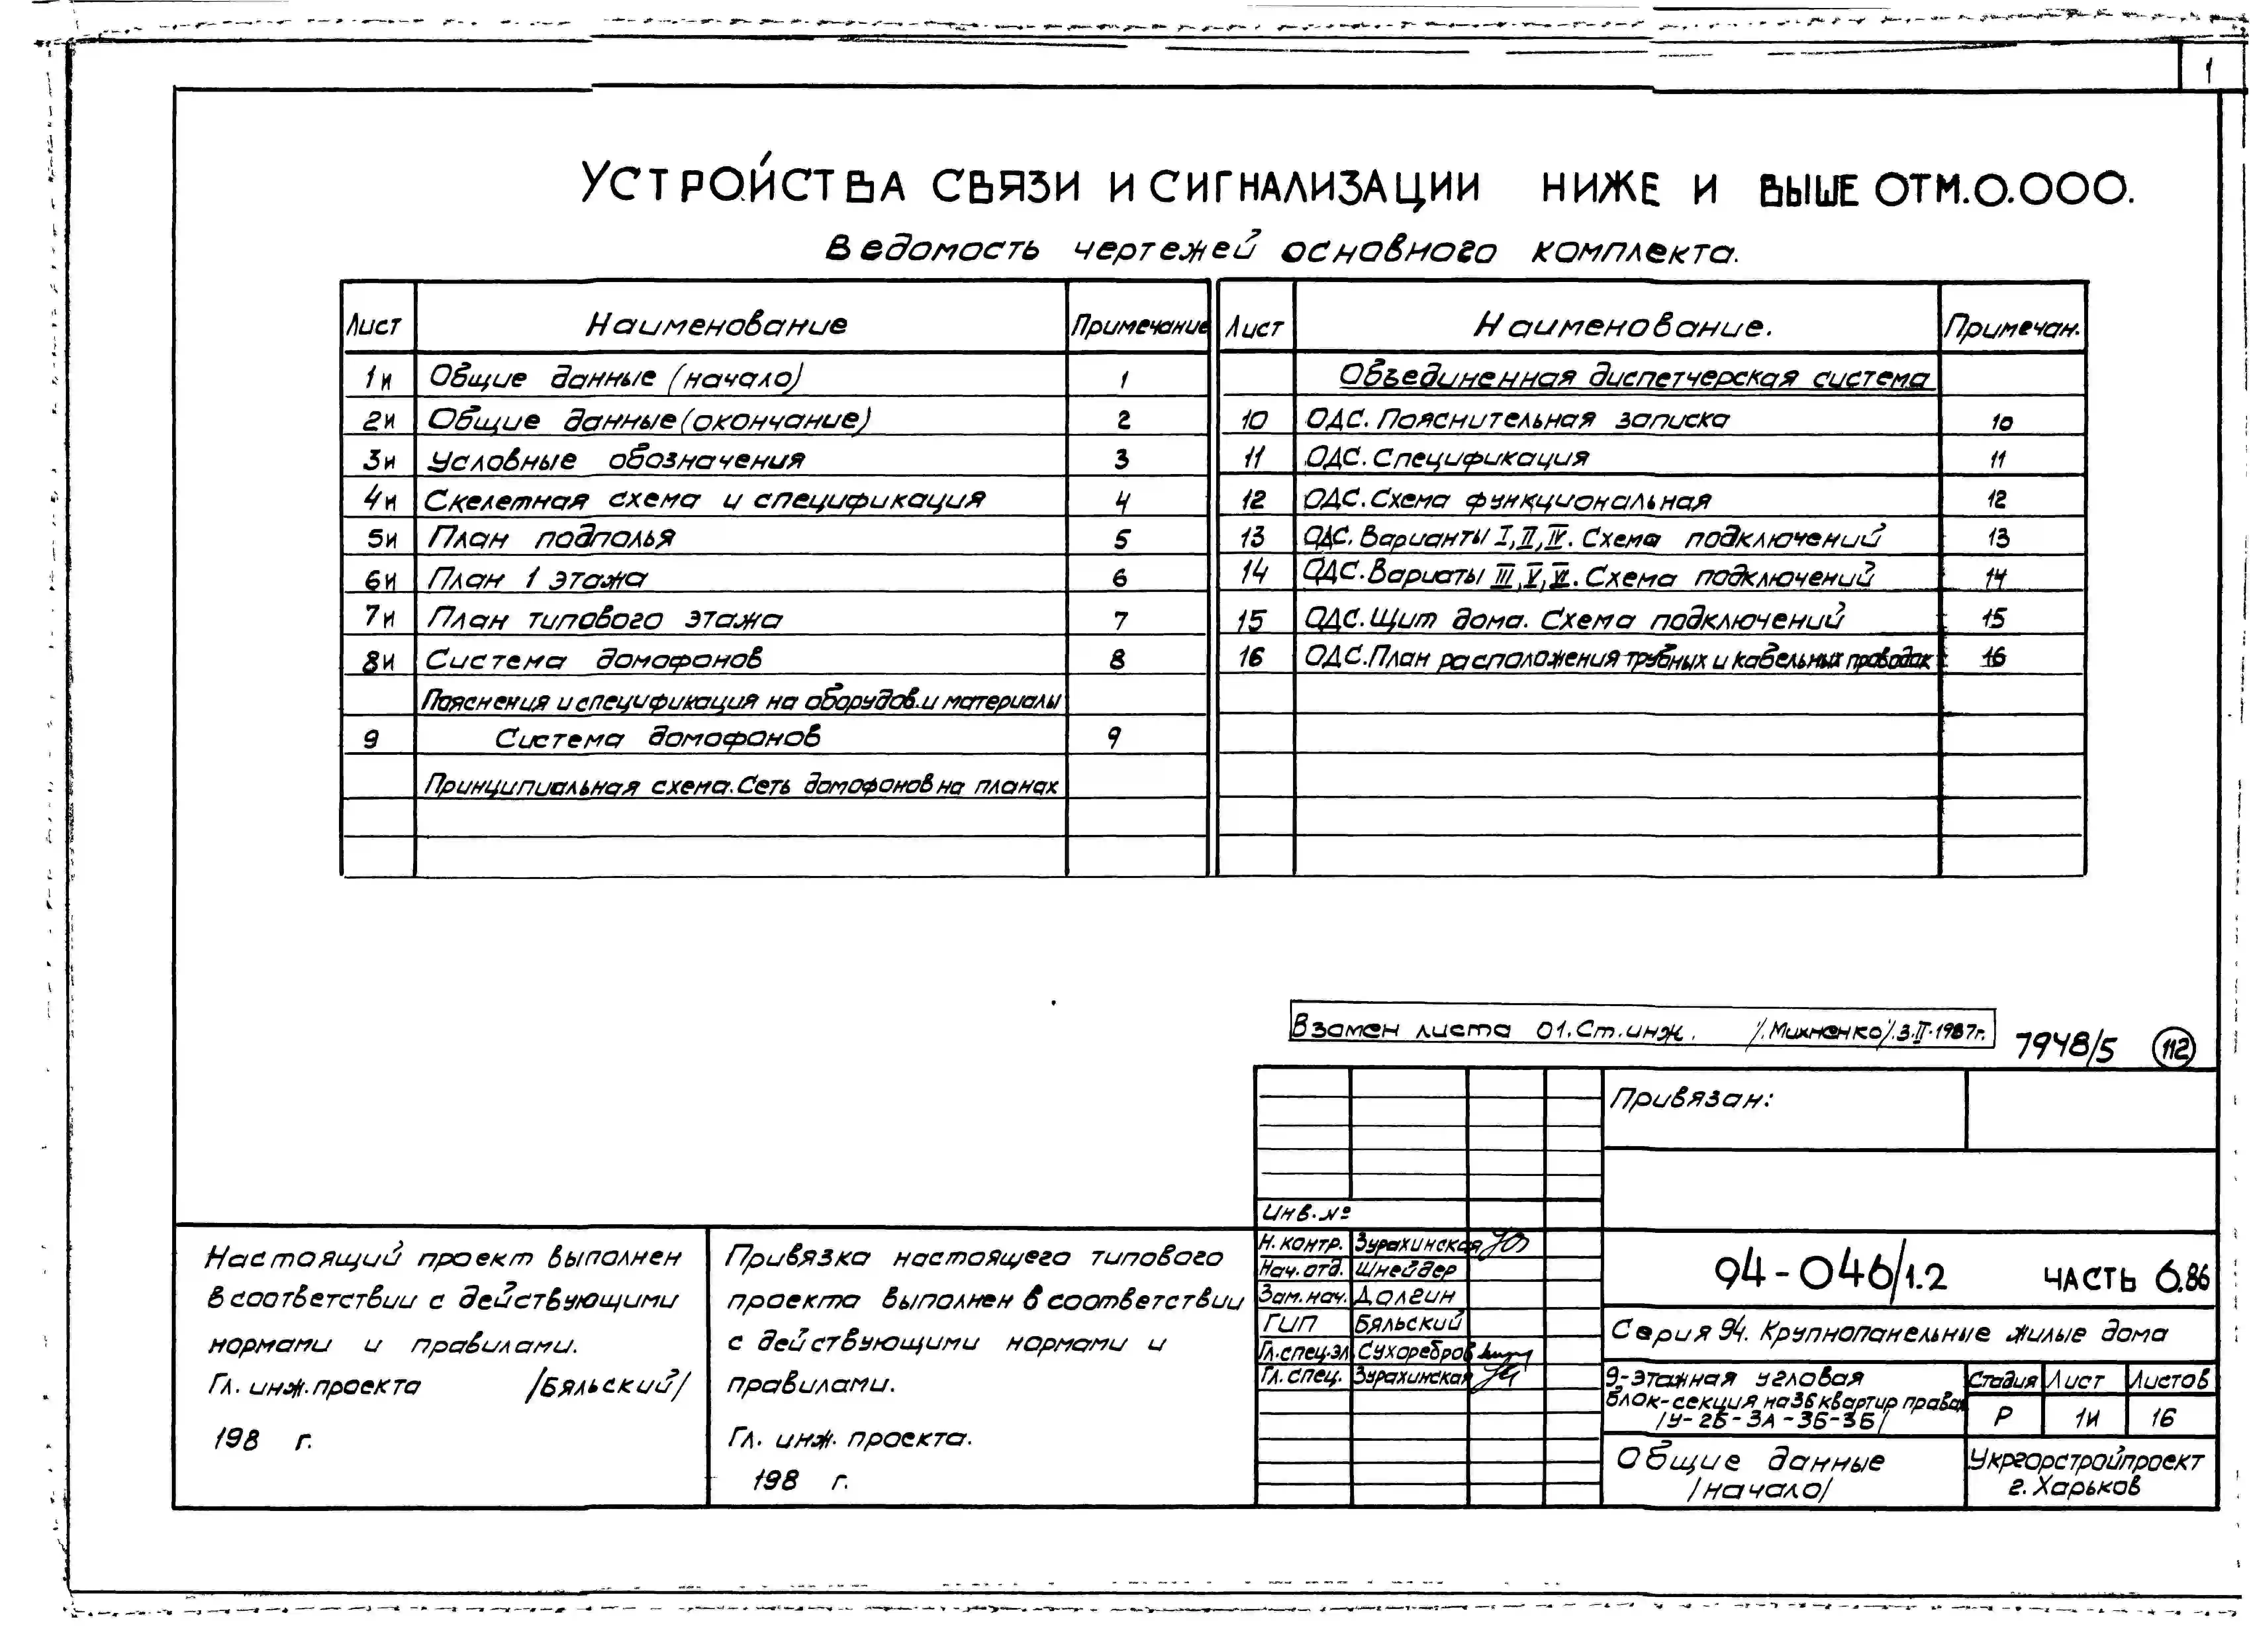 1
УСТРОЙСТВА СВЯЗИ И СИГНАЛИЗАЦИИ НИЖЕ И ВЫШЕ ОТМ.0.000.
Ведомость чертежей основного комплекта.
Лист Наименование Примечание
1и Общие данные (начало) 1
2и Общие данные (окончание) 2
3и Условные обозначения 3
4и Скелетная схема и спецификация 4
5и План подполья 5
6и План 1 этажа 6
7и План типового этажа 7
8и Система домофонов 8
Пояснения и спецификация на оборудов. и материалы
9 Система домофонов 9
Принципиальная схема. Сеть домофонов на планах
Лист Наименование. Примечан.
Объединенная диспетчерская система
10 ОДС. Пояснительная записка 10
11 ОДС. Спецификация 11
12 ОДС. Схема функциональная 12
13 ОДС. Варианты I, II, IV. Схема подключений 13
14 ОДС. Вариаты III, V, VI. Схема подключений 14
15 ОДС. Щит дома. Схема подключений 15
16 ОДС. План расположения трубных и кабельных проводок 16
Взамен листа 01. Ст. инж. /. Михненко/. 3.II-1987г.
7948/5 112
Привязан:
Инв. №
Н. контр. Зурахинская
Нач. отд. Шнейдер
Зам. нач. Долгин
ГИП Бяльский
Гл. спец. эл. Сухоребров
Гл. спец. Зурахинская
94-046/1.2 ЧАСТЬ 6.86
Серия 94. Крупнопанельные жилые дома
9-этажная угловая
блок-секция на 36 квартир правая
/У-2Б-3А-3Б-3Б/
Стадия Лист Листов
Р 1и 16
Общие данные
/начало/
Укргорстройпроект
г. Харьков
Настоящий проект выполнен
в соответствии с действующими
нормами и правилами.
Гл. инж. проекта /Бяльский/
198 г.
Привязка настоящего типового
проекта выполнен в соответствии
с действующими нормами и
правилами.
Гл. инж. проекта.
198 г.